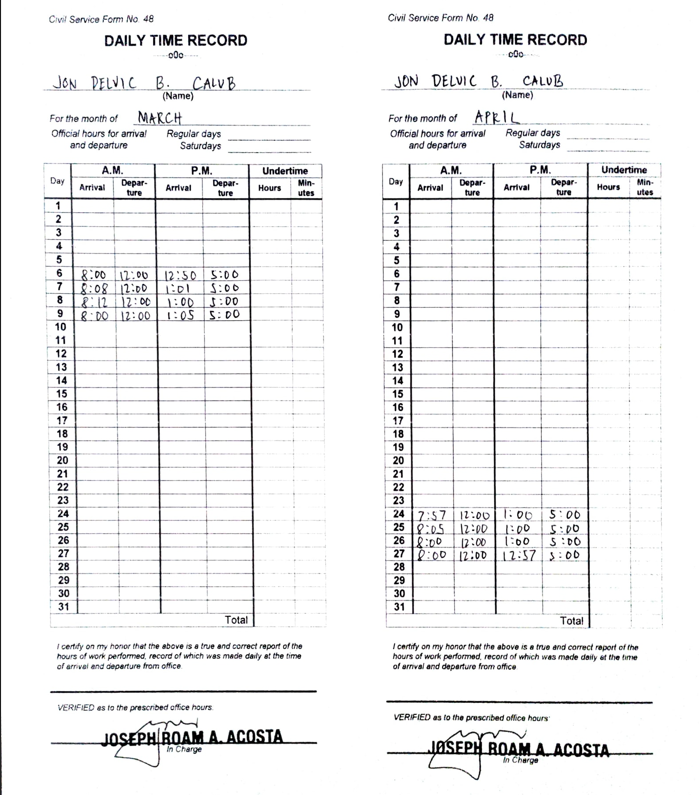 Civil Service Form No. 48
DAILY TIME RECORD
---o0o---
JON DELVIC B. CALUB
(Name)
For the month of MARCH
Official hours for arrival Regular days
and departure Saturdays
A.M. P.M. Undertime
Day Arrival Depar-ture Arrival Depar-ture Hours Min-utes
1
2
3
4
5
6 8:00 12:00 12:50 5:00
7 8:08 12:00 1:01 5:00
8 8:12 12:00 1:00 5:00
9 8:00 12:00 1:05 5:00
10
11
12
13
14
15
16
17
18
19
20
21
22
23
24
25
26
27
28
29
30
31
Total
I certify on my honor that the above is a true and correct report of the
hours of work performed, record of which was made daily at the time
of arrival and departure from office
VERIFIED as to the prescribed office hours.
JOSEPH ROAM A. ACOSTA
In Charge
Civil Service Form No. 48
DAILY TIME RECORD
---o0o---
JON DELVIC B. CALUB
(Name)
For the month of APRIL
Official hours for arrival Regular days
and departure Saturdays
A.M. P.M. Undertime
Day Arrival Depar-ture Arrival Depar-ture Hours Min-utes
1
2
3
4
5
6
7
8
9
10
11
12
13
14
15
16
17
18
19
20
21
22
23
24 7:57 12:00 1:00 5:00
25 8:05 12:00 1:00 5:00
26 8:00 12:00 1:00 5:00
27 8:00 12:00 12:57 5:00
28
29
30
31
Total
I certify on my honor that the above is a true and correct report of the
hours of work performed, record of which was made daily at the time
of arrival and departure from office
VERIFIED as to the prescribed office hours:
JOSEPH ROAM A. ACOSTA
In Charge